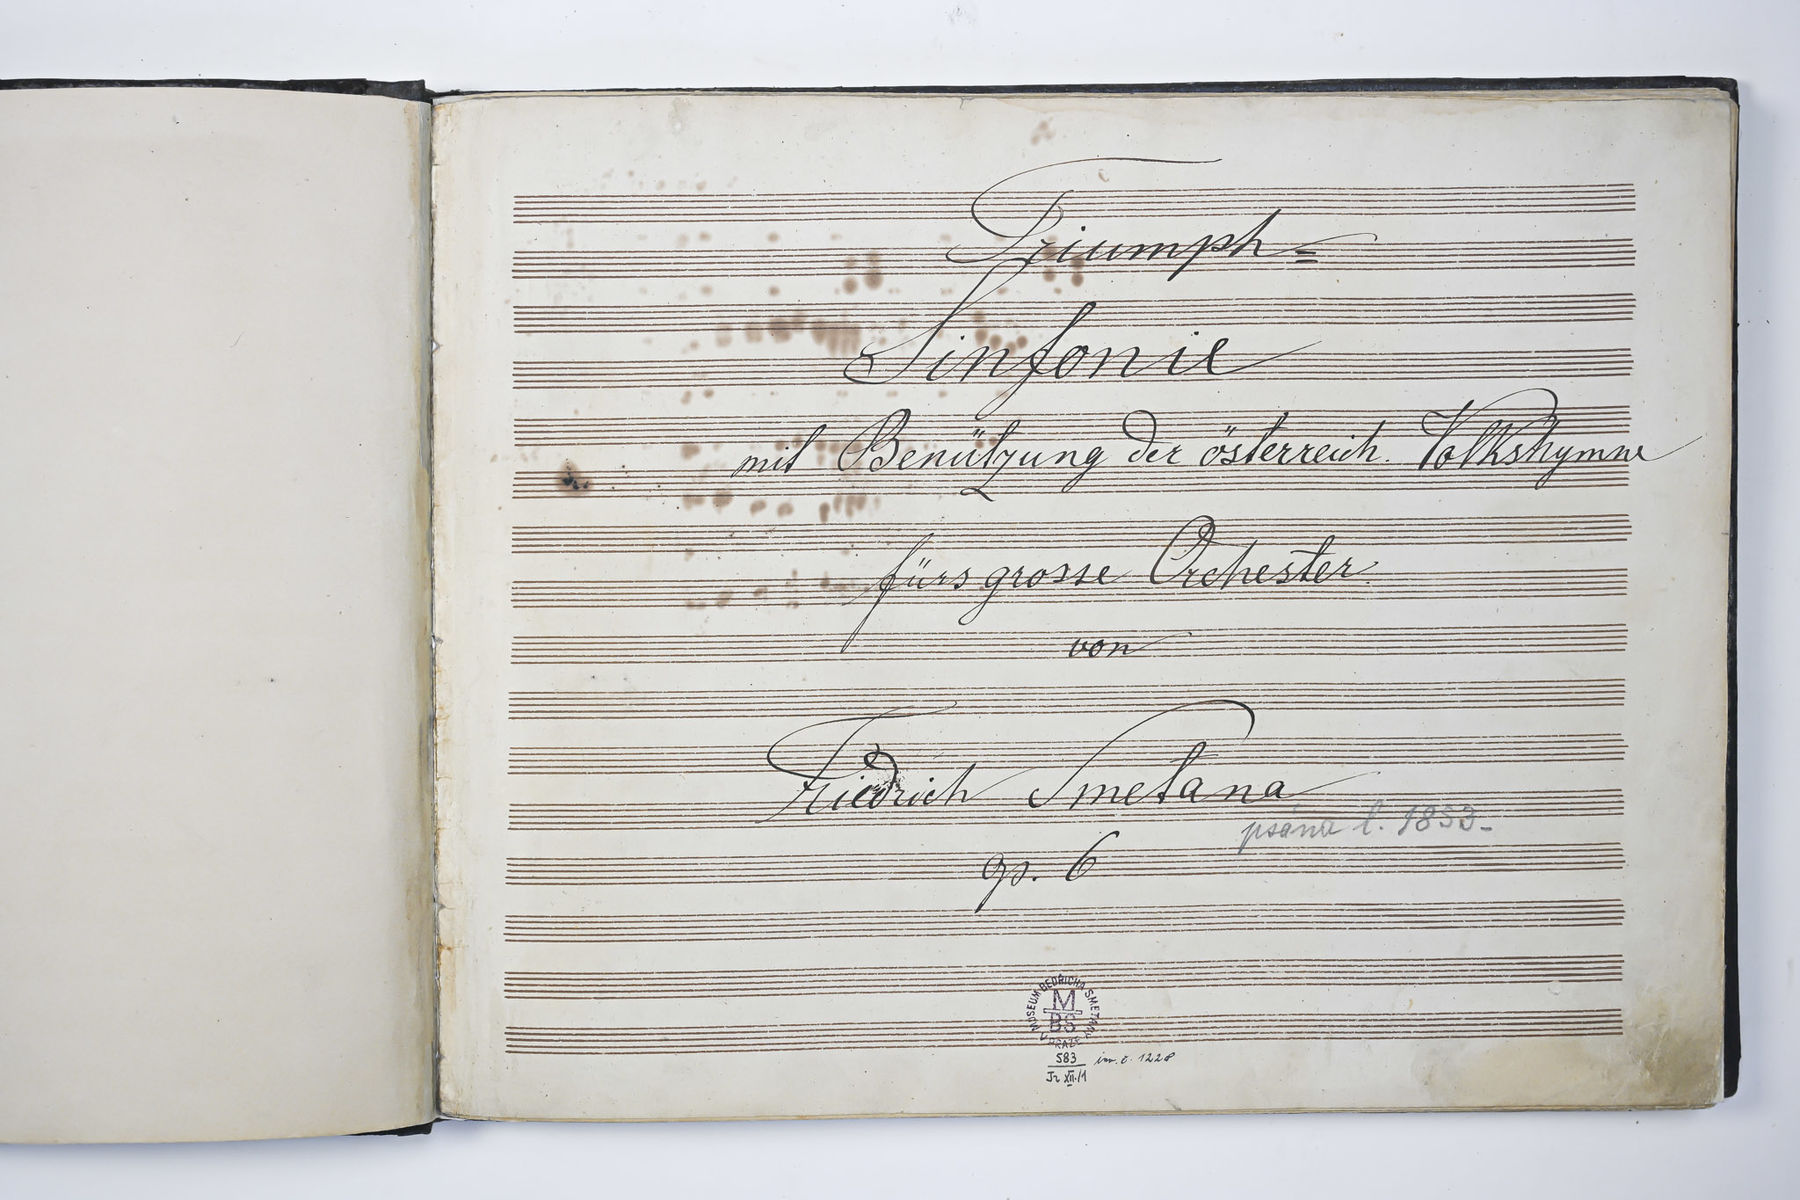 Triumph=
Sinfonie
mit Benützung der österreich. Volkshymne
fürs grosse Orchester
von
Friedrich Smetana
psána l. 1853-
op. 6
MUSEUM BEDŘICHA SMETANY V PRAZE
M
BS
583 inv. č. 1228
Tr XII./1